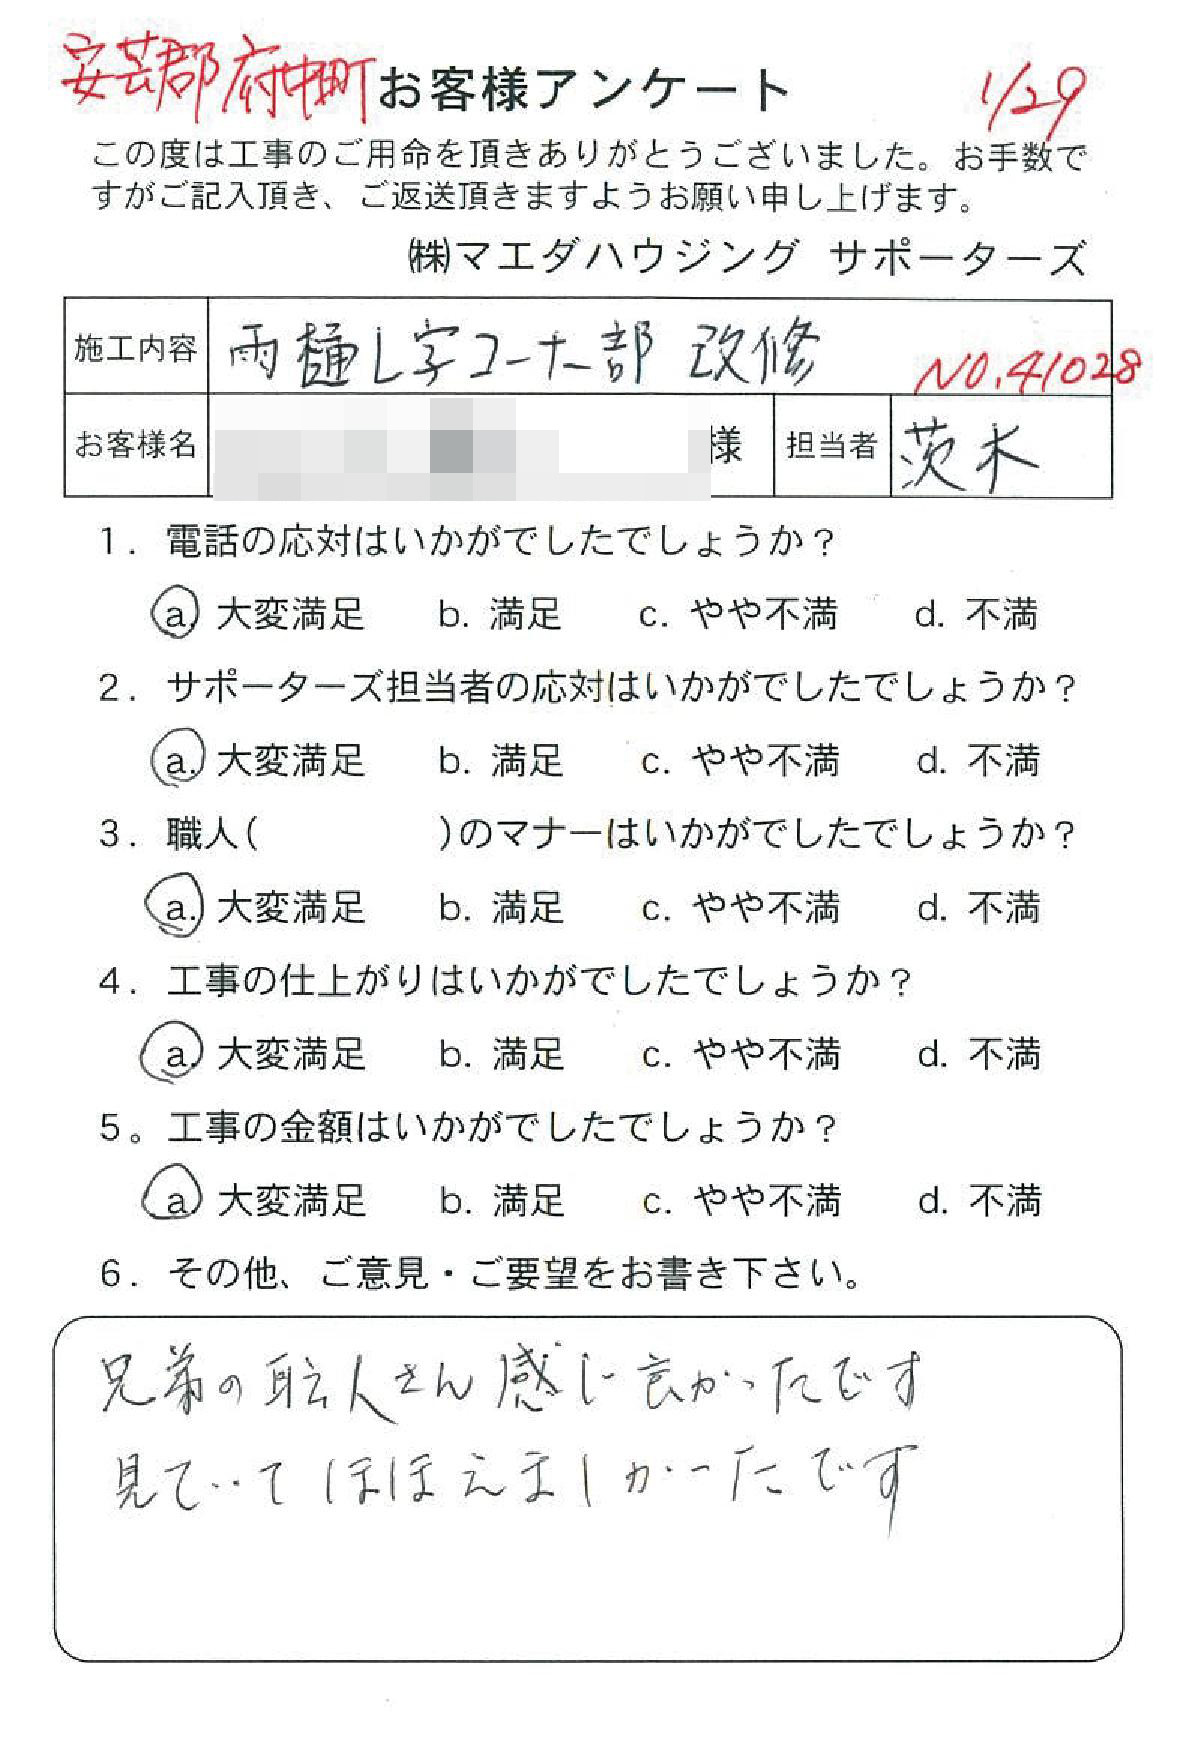 安芸郡府中町 お客様アンケート 1/29
この度は工事のご用命を頂きありがとうございました。お手数で
すがご記入頂き、ご返送頂きますようお願い申し上げます。
㈱マエダハウジング サポーターズ
施工内容 雨樋L字コーナー部 改修 NO.41028
お客様名 様 担当者 茨木
1. 電話の応対はいかがでしたでしょうか？
a. 大変満足 b. 満足 c. やや不満 d. 不満
2. サポーターズ担当者の応対はいかがでしたでしょうか？
a. 大変満足 b. 満足 c. やや不満 d. 不満
3. 職人( )のマナーはいかがでしたでしょうか？
a. 大変満足 b. 満足 c. やや不満 d. 不満
4. 工事の仕上がりはいかがでしたでしょうか？
a. 大変満足 b. 満足 c. やや不満 d. 不満
5。工事の金額はいかがでしたでしょうか？
a. 大変満足 b. 満足 c. やや不満 d. 不満
6. その他、ご意見・ご要望をお書き下さい。
兄弟の職人さん感じ良かったです
見ていてほほえましかったです